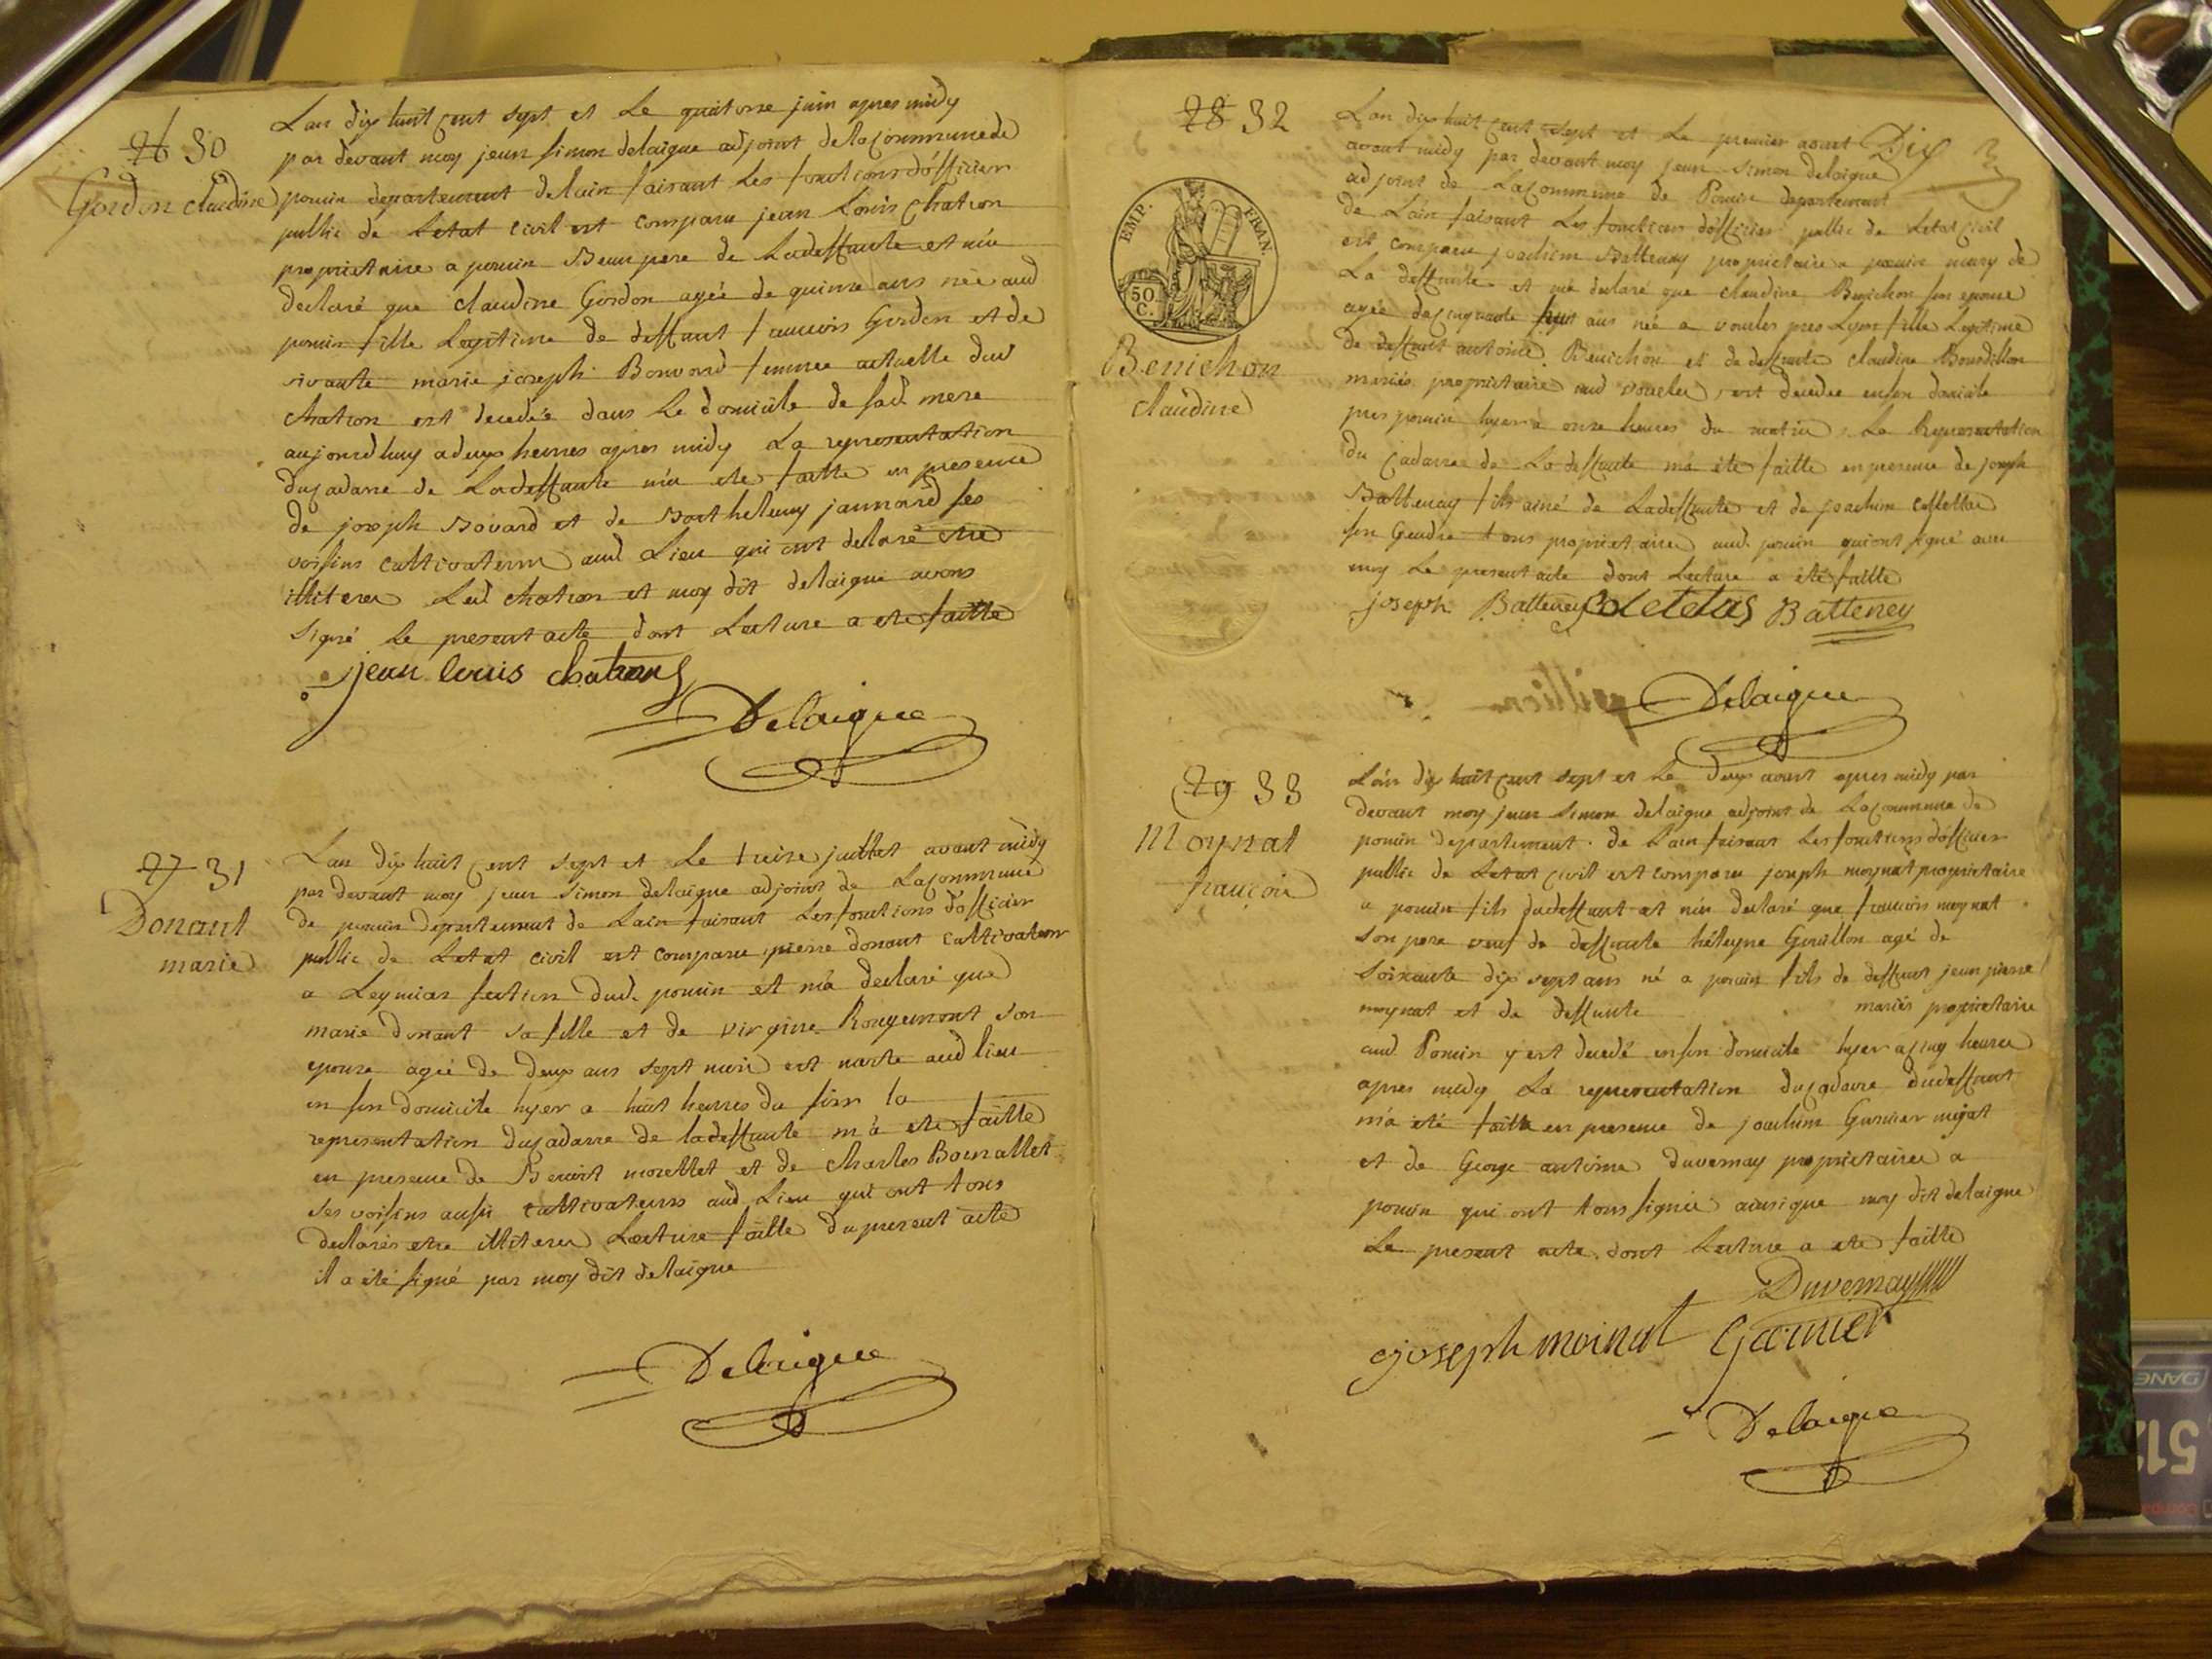 26 30
Gordon claudine
Lan dix huit cent sept et le quatorze juin apres midy
par devant moy jean simon delaigue adjoint de la commune de
poncin departement de lain faisant les fonctions d'officier
public de Letat civil est comparu jean Louis Chatron
proprietaire a poncin Beau pere de Ladeffunte et m'a
declaré que claudine Gordon agée de quinze ans née aud
poncin fille Legitime de deffunt francois Gordon et de
vivante marie joseph Bonvard femme actuelle dud
chatron est decedée dans le domicile de sad mere
aujourdhuy a deux heures apres midy La representation
du cadavre de Ladeffunte m'a ete faitte en presence
de joseph Bovard et de Barthelemy jannard ses
voisins cultivateurs aud Lieu qui ont delaré etre
illiteres Led chatron et moy dit delaigue avons
signé Le present acte dont Lecture a ete faitte
jean louis chatron
Delaigue
27 31
Donant
marie
Lan dix huit cent sept et le treize juillet avant midy
par devant moy jean simon delaigue adjoint de La commune
de poncin departement de Lain faisant Les fonctions d'officier
public de Letat civil est comparu pierre donant cultivateur
a Leymiat section dud. poncin et m'a declaré que
marie donant sa fille et de virginie Rougemont son
epouse agée de deux ans sept mois est morte aud lieu
en son domicile hyer a huit heures du soir la
representation du cadavre de ladeffunte m'a ete faitte
en presence de Benoit morellet et de charles Bouvallet
ses voisins aussi cultivateurs aud Lieu qui ont tous
declarés etre illiteres Lecture faitte du present acte
il a été signé par moy dit delaigue
Delaigue
28 32
Dix
EMP. FRAN.
50 C.
Benichon
claudine
Lan dix huit cent sept et le premier aoust
avant midy par devant moy jean simon delaigue
adjoint de La commune de Poncin departement
de Lain faisant Les fonctions d'officier public de Letat Civil
est comparu joachim Batteney proprietaire a poncin mary de
La deffunte et m'a declaré que claudine Benichon son epouse
agée de cinquante huit ans née a voucles pres Lyon fille Legitime
de deffunt antoine Benichon et de deffunte claudine Bourdillon
mariés proprietaire aud voucles est decedée en son domicile
pres poncin hyer a onze heures du matin La Representation
du Cadavre de La deffunte m'a été faitte en presence de joseph
Batteney fils ainé de Ladeffunte et de joachim
son Gendre tous proprietaires aud. poncin qui ont signé avec
moy Le present acte dont Lecture a été faitte
joseph Batteney Coletetas Batteney
Delaigue
29 33
Moynat
françois
Lan dix huit cent sept et le deux aoust apres midy par
devant moy jean simon delaigue adjoint de La commune de
poncin departement de Lain faisant Les fonctions d'officier
public de Letat Civil est comparu joseph moynat proprietaire
a poncin fils dudeffunt et m'a declaré que francois moynat
son pere veuf de deffunte héleyne Gouillon agé de
soixante dix sept ans né a poncin fils de deffunt jean pierre
moynat et de deffunte mariés proprietaire
aud Poncin y est decedé en son domicile hyer a cinq heures
apres midy La representation du cadavre dudeffunt
m'a été faitte en presence de joachim Garnier
et de George antoine duvernay proprietaires a
poncin qui ont tous signés ainsi que moy dit delaigue
Le present acte dont Lecture a ete faitte
Duvernay
joseph moinat Garnier
Delaigue
DANE
512